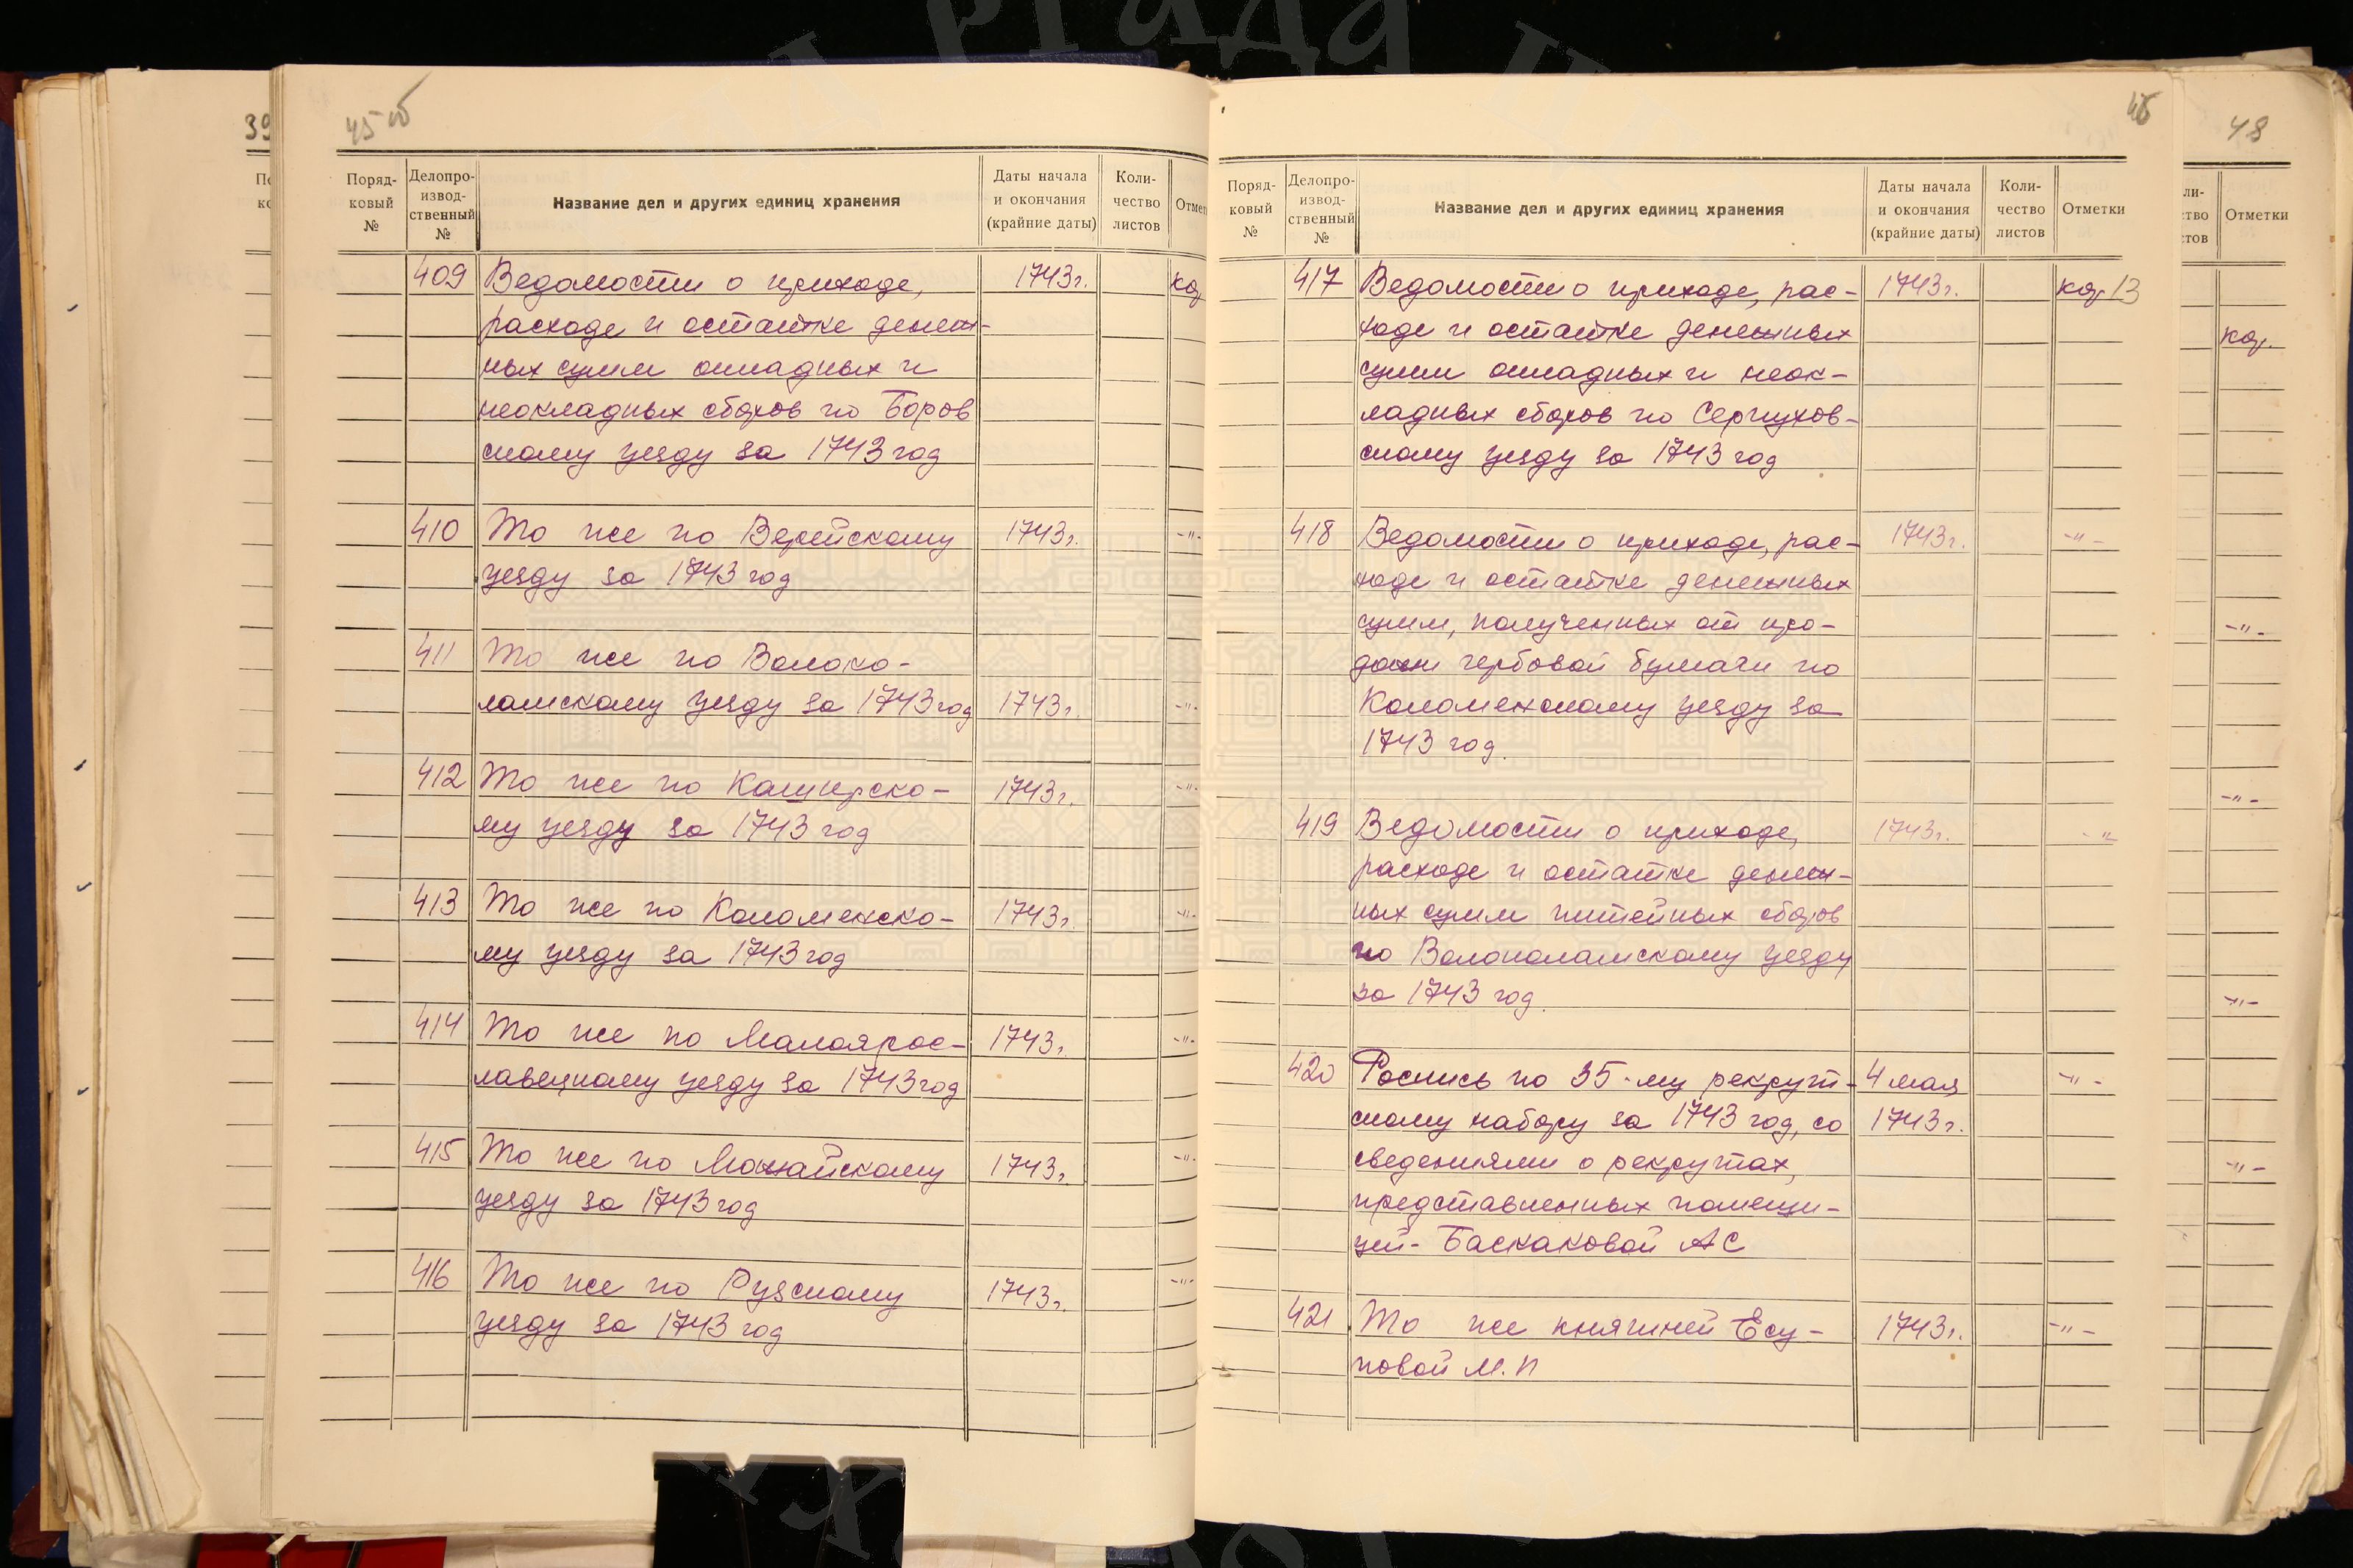 39
45 об
Поряд-
ковый
№
Делопро-
извод-
ственный
№
Название дел и других единиц хранения
Даты начала
и окончания
(крайние даты)
Коли-
чество
листов
Отмет
409 Ведомости о приходе, 1743г. кор
расходе и остатке денеж-
ных сумм окладных и
неокладных сборов по Боров
скому уезду за 1743 год
410 То же по Верейскому 1743г. -"-
уезду за 1743 год
411 То же по Волоко-
ламскому уезду за 1743 год 1743г. -"-
412 То же по Каширско- 1743г. -"-
му уезду за 1743 год
413 То же по Коломенско- 1743г. -"-
му уезду за 1743 год
414 То же по Малоярос- 1743г. -"-
лавецкому уезду за 1743 год
415 То же по Можайскому 1743г. -"-
уезду за 1743 год
416 То же по Рузскому 1743г. -"-
уезду за 1743 год
46
Поряд-
ковый
№
Делопро-
извод-
ственный
№
Название дел и других единиц хранения
Даты начала
и окончания
(крайние даты)
Коли-
чество
листов
Отметки
417 Ведомости о приходе, рас- 1743г. кор 13
ходе и остатке денежных
сумм окладных и неок-
ладных сборов по Серпухов-
скому уезду за 1743 год
418 Ведомости о приходе, рас- 1743г. -"-
ходе и остатке денежных
сумм, полученных от про-
дажи гербовой бумаги по
Коломенскому уезду за
1743 год.
419 Ведомости о приходе, 1743г. -"
расходе и остатке денеж-
ных сумм питейных сборов
по Волоколамскому уезду
за 1743 год.
420 Роспись по 35-му рекрут- 4 мая -"-
скому набору за 1743 год, со 1743г.
сведениями о рекрутах,
представленных помещи-
цей- Баскаковой АС
421 То же княгиней Есу- 1743г. -"-
повой М.П
48
ли-
тво
тов
Отметки
кор.
-"-
-"-
-"-
-"-